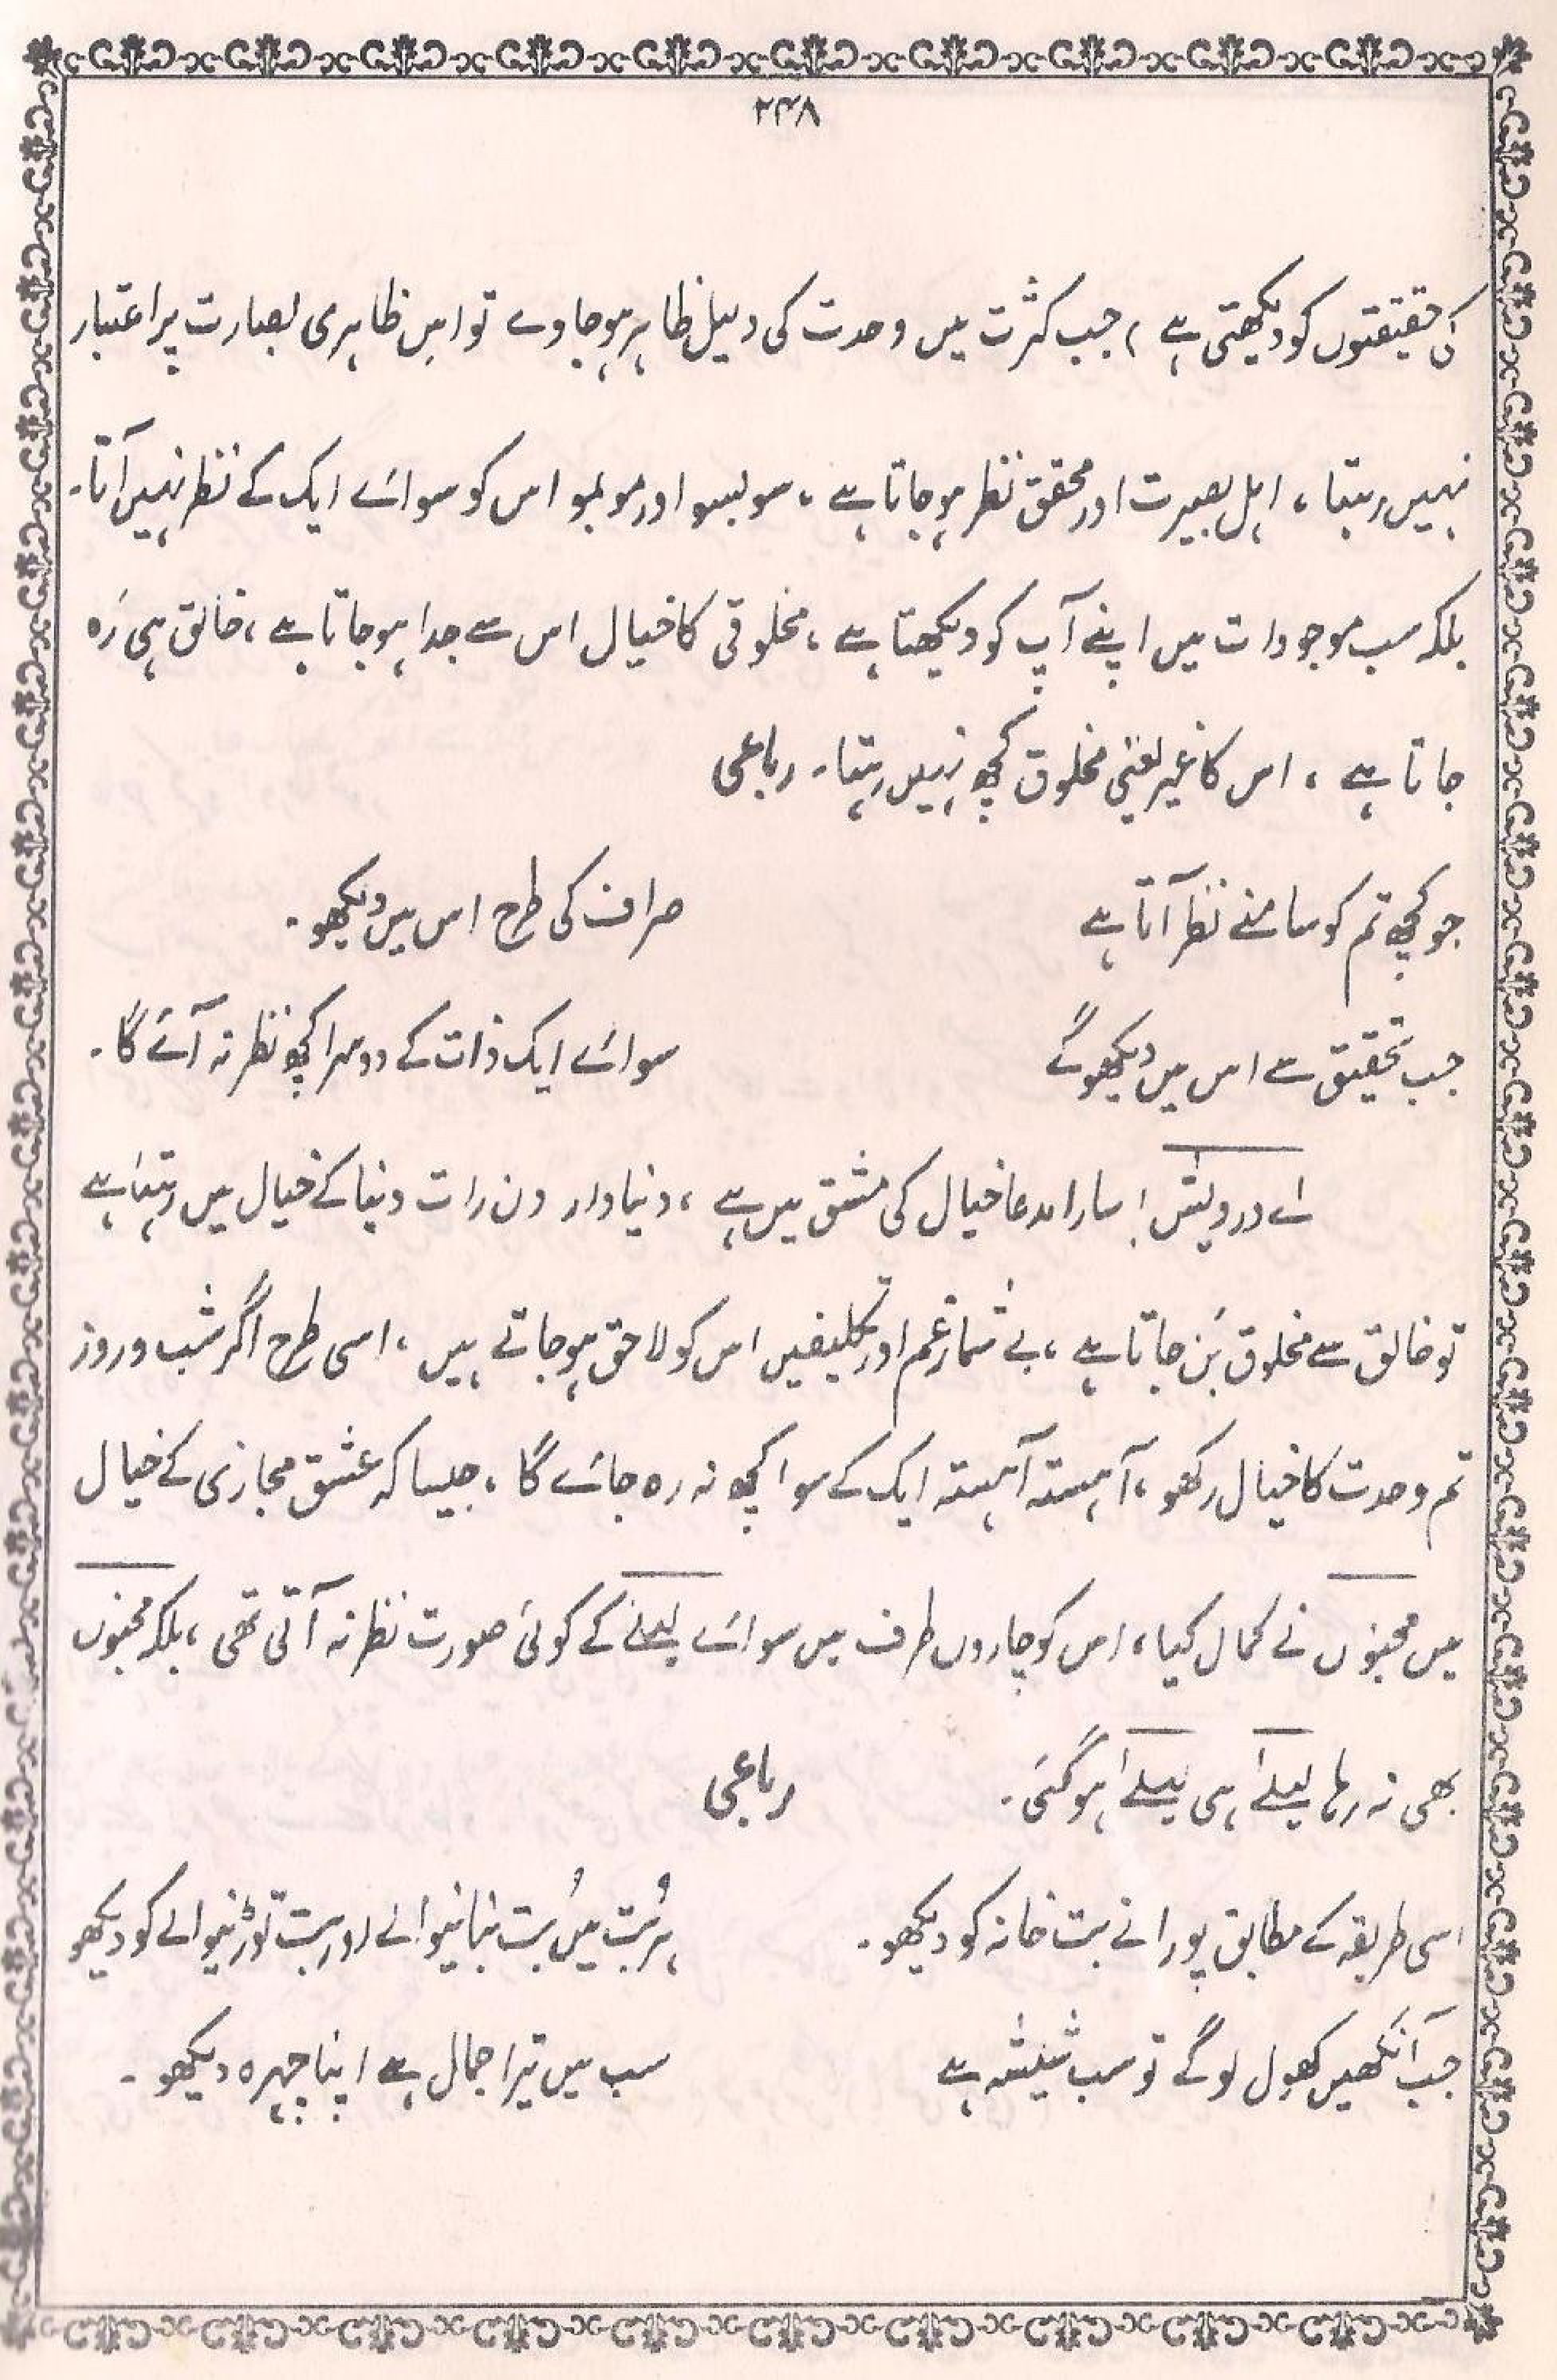 ۲۴۸
کی حقیقتوں کو دیکھتی ہے، جب کثرت میں وحدت کی دلیل ظاہر ہو جاوے تو اس ظاہری بصارت پر اعتبار
نہیں رہتا، اہل بصیرت اور محقق نظر ہو جاتا ہے، سو بسو اور مو بمو اس کو سوائے ایک کے نظر نہیں آتا۔
بلکہ سب موجودات میں اپنے آپ کو دیکھتا ہے، مخلوقی کا خیال اس سے جدا ہو جاتا ہے، خالق ہی رَہ
جاتا ہے، اس کا غیر یعنی مخلوق کچھ نہیں رہتا۔ رباعی
جو کچھ تم کو سامنے نظر آتا ہے صراف کی طرح اس میں دیکھو۔
جب تحقیق سے اس میں دیکھو گے سوائے ایک ذات کے دوسرا کچھ نظر نہ آئے گا۔
اے درویش! سارا مدعا خیال کی مشق میں ہے، دنیادار دن رات دنیا کے خیال میں رہتا ہے
تو خالق سے مخلوق بَن جاتا ہے، بے شمار غم اور تکلیفیں اس کو لاحق ہو جاتے ہیں، اسی طرح اگر شب و روز
تم وحدت کا خیال رکھو، آہستہ آہستہ ایک کے سوا کچھ نہ رہ جائے گا، جیسا کہ عشق مجازی کے خیال
میں مجنوں نے کمال کیا، اس کو چاروں طرف میں سوائے لیلےٰ کے کوئی صورت نظر نہ آتی تھی، بلکہ مجنوں
بھی نہ رہا لیلےٰ ہی لیلےٰ ہو گئی۔ رباعی
اسی طریقہ کے مطابق پورانے بت خانہ کو دیکھو۔ ہر بُت میں بُت بنانیوالے اور بت توڑنیوالے کو دیکھو
جب آنکھیں کھول لو گے تو سب شیشہ ہے سب میں تیرا جمال ہے اپنا چہرہ دیکھو۔